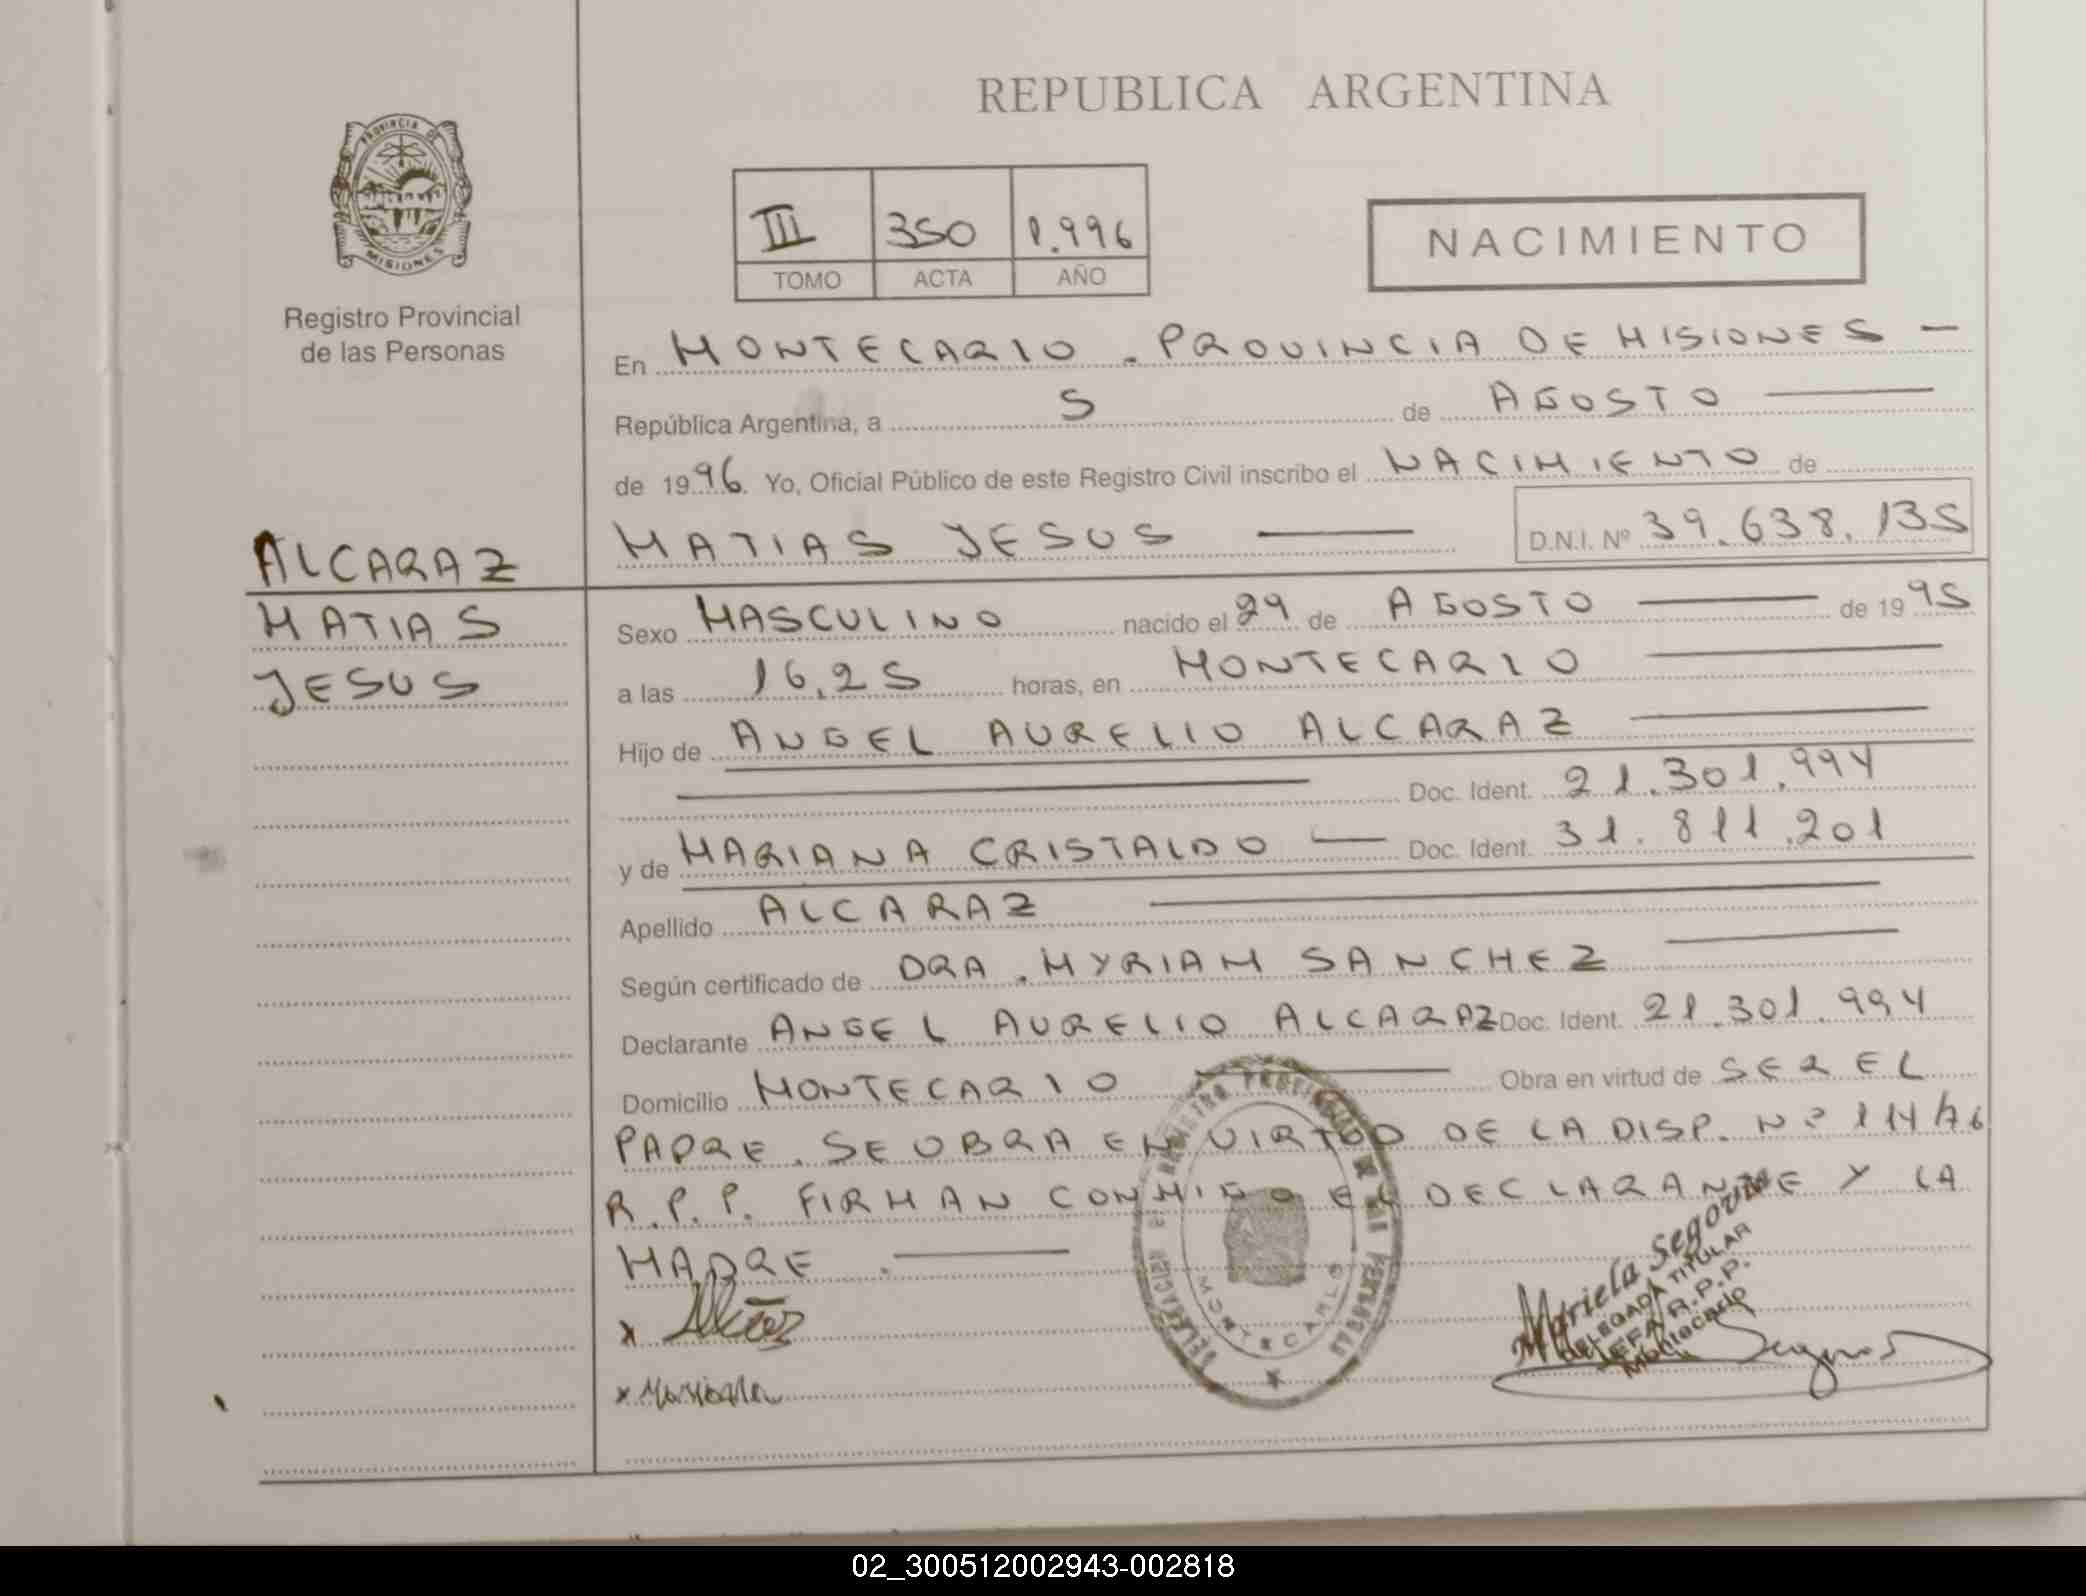 REPUBLICA ARGENTINA
PROVINCIA DE MISIONES
Registro Provincial
de las Personas
III 350 1.996
TOMO ACTA AÑO
NACIMIENTO
En MONTECARLO . PROVINCIA DE MISIONES —
República Argentina, a 5 de AGOSTO
de 1996. Yo, Oficial Público de este Registro Civil inscribo el NACIMIENTO de
MATIAS JESUS D.N.I. Nº 39.638.135
ALCARAZ
MATIAS
JESUS
Sexo MASCULINO nacido el 29 de AGOSTO de 1995
a las 16,25 horas, en MONTECARLO
Hijo de ANGEL AURELIO ALCARAZ
Doc. Ident. 21.301.994
y de MARIANA CRISTALDO — Doc. Ident. 31.811.201
Apellido ALCARAZ
Según certificado de DRA . MYRIAM SANCHEZ
Declarante ANGEL AURELIO ALCARAZ Doc. Ident. 21.301.994
Domicilio MONTECARLO Obra en virtud de SER EL
PADRE . SE OBRA EN VIRTUD DE LA DISP. Nº 114/76
R.P.P. FIRMAN CONMIGO EL DECLARANTE Y LA
MADRE .
MONTECARLO
Mariela Segovia
DELEGADA TITULAR
JEFA R.P.P.
Montecarlo
02_300512002943-002818